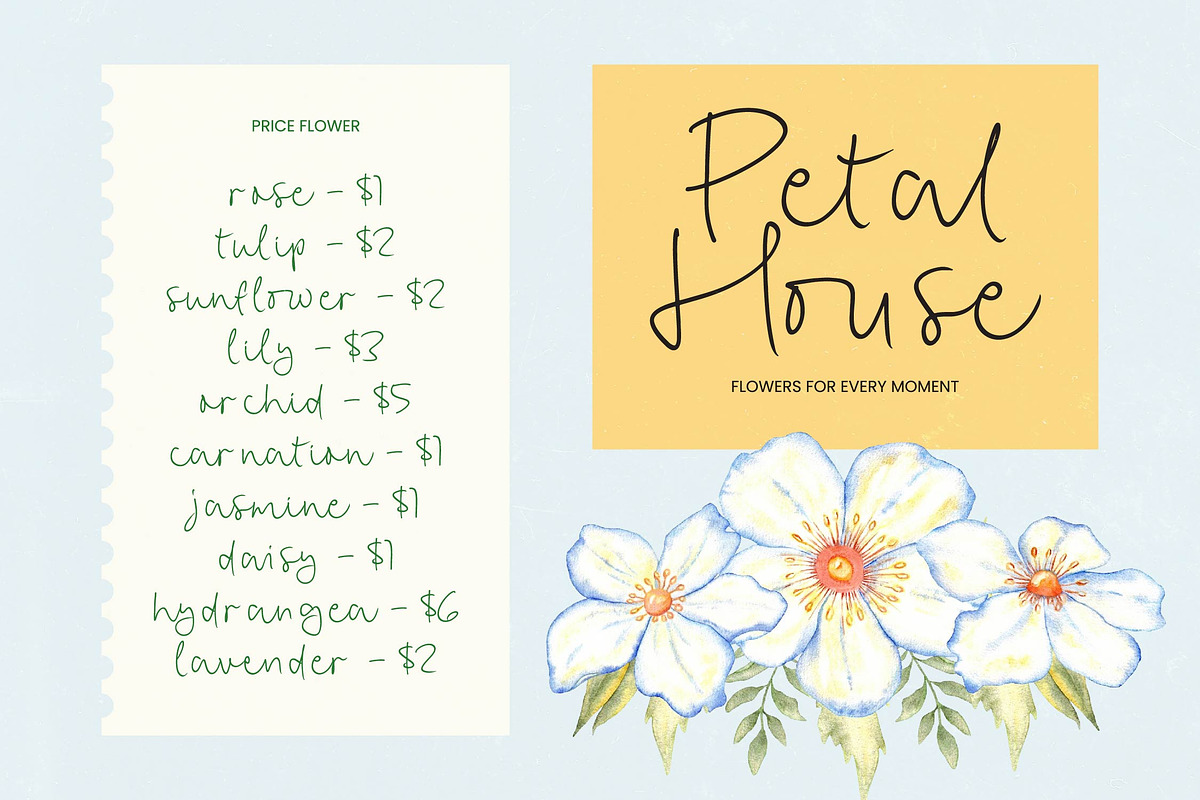 PRICE FLOWER
rose – $1
tulip – $2
sunflower – $2
lily – $3
orchid – $5
carnation – $1
jasmine – $1
daisy – $1
hydrangea – $6
lavender – $2
Petal
House
FLOWERS FOR EVERY MOMENT